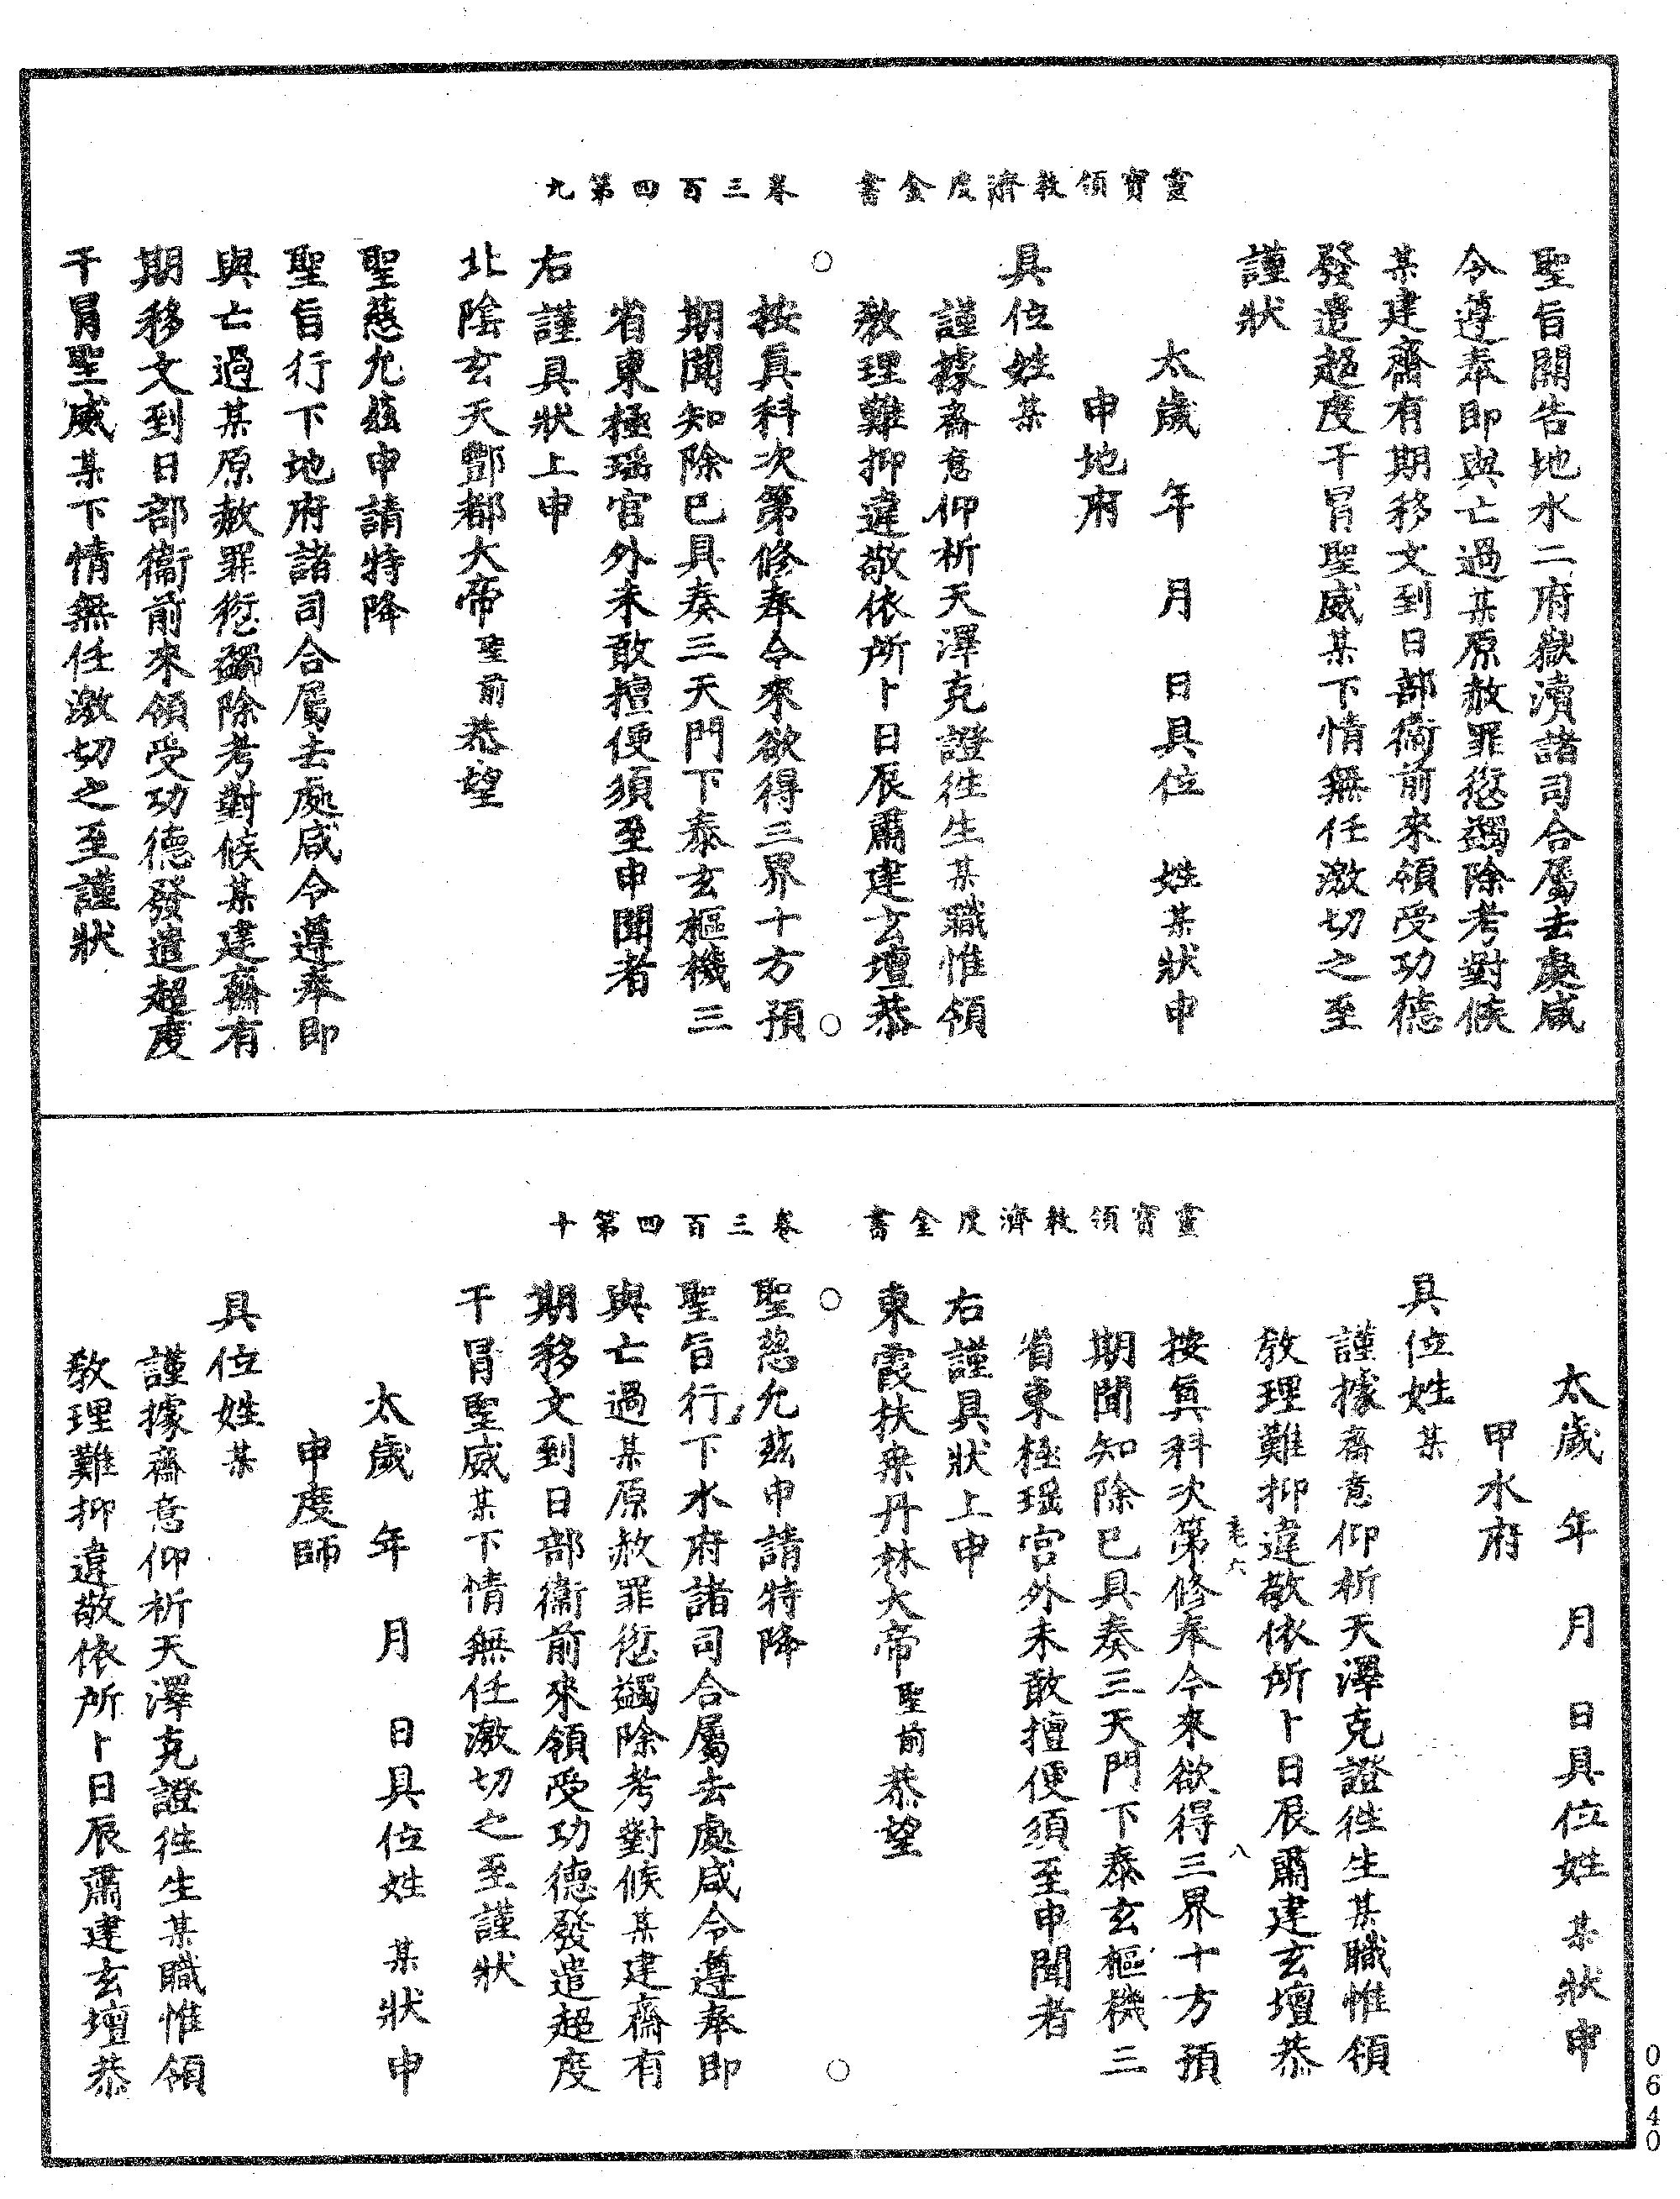 靈寶領教濟度金書 卷三百四第九
聖旨關告地水二府嶽瀆諸司合屬去處咸
令遵奉即與亡過某原赦罪愆蠲除考對候
某建齋有期移文到日部衛前來領受功德
發遣超度干冒聖威某下情無任激切之至
謹狀
太歲 年 月 日具位 姓某狀申
申地府
具位姓某
謹據齋意仰祈天澤克證往生某職惟領
教理難抑違敬依所卜日辰肅建玄壇恭
按真科次第修奉今來欲得三界十方預
期聞知除已具奏三天門下泰玄樞機三
省東極瑶宮外未敢擅便須至申聞者
右謹具狀上申
北陰玄天酆都大帝聖前恭望
聖慈允茲申請特降
聖旨行下地府諸司合屬去處咸令遵奉即
與亡過某原赦罪愆蠲除考對候某建齋有
期移文到日部衛前來領受功德發遣超度
干冒聖威某下情無任激切之至謹狀
靈寶領教濟度金書 卷三百四第十
太歲 年 月 日具位姓某狀申
申水府
具位姓某
謹據齋意仰祈天澤克證往生某職惟領
教理難抑違敬依所卜日辰肅建玄壇恭
按真科次第修奉今來欲得三界十方預
期聞知除已具奏三天門下泰玄樞機三
省東極瑶宮外未敢擅便須至申聞者
右謹具狀上申
東霞扶桒丹林大帝聖前恭望
聖慈允茲申請特降
聖旨行下水府諸司合屬去處咸令遵奉即
與亡過某原赦罪愆蠲除考對候某建齋有
期移文到日部衛前來領受功德發遣超度
干冒聖威某下情無任激切之至謹狀
太歲 年 月 日具位姓某狀申
申度師
具位姓某
謹據齋意仰祈天澤克證往生某職惟領
教理難抑違敬依所卜日辰肅建玄壇恭
0640